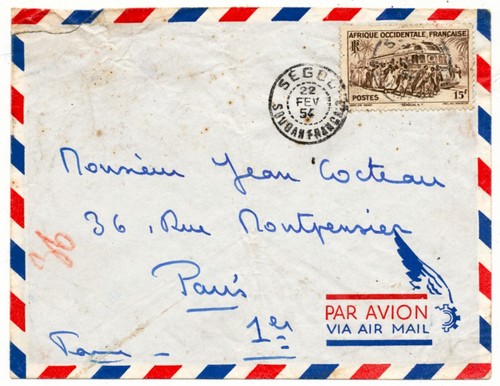 AFRIQUE OCCIDENTALE FRANÇAISE
RF
POSTES
SÉNÉGAL
15f
SÉGOU
22
FEV
54
SOUDAN FRANÇAIS
Monsieur Jean Cocteau
36, Rue Montpensier
36
Paris
1er
PAR AVION
VIA AIR MAIL